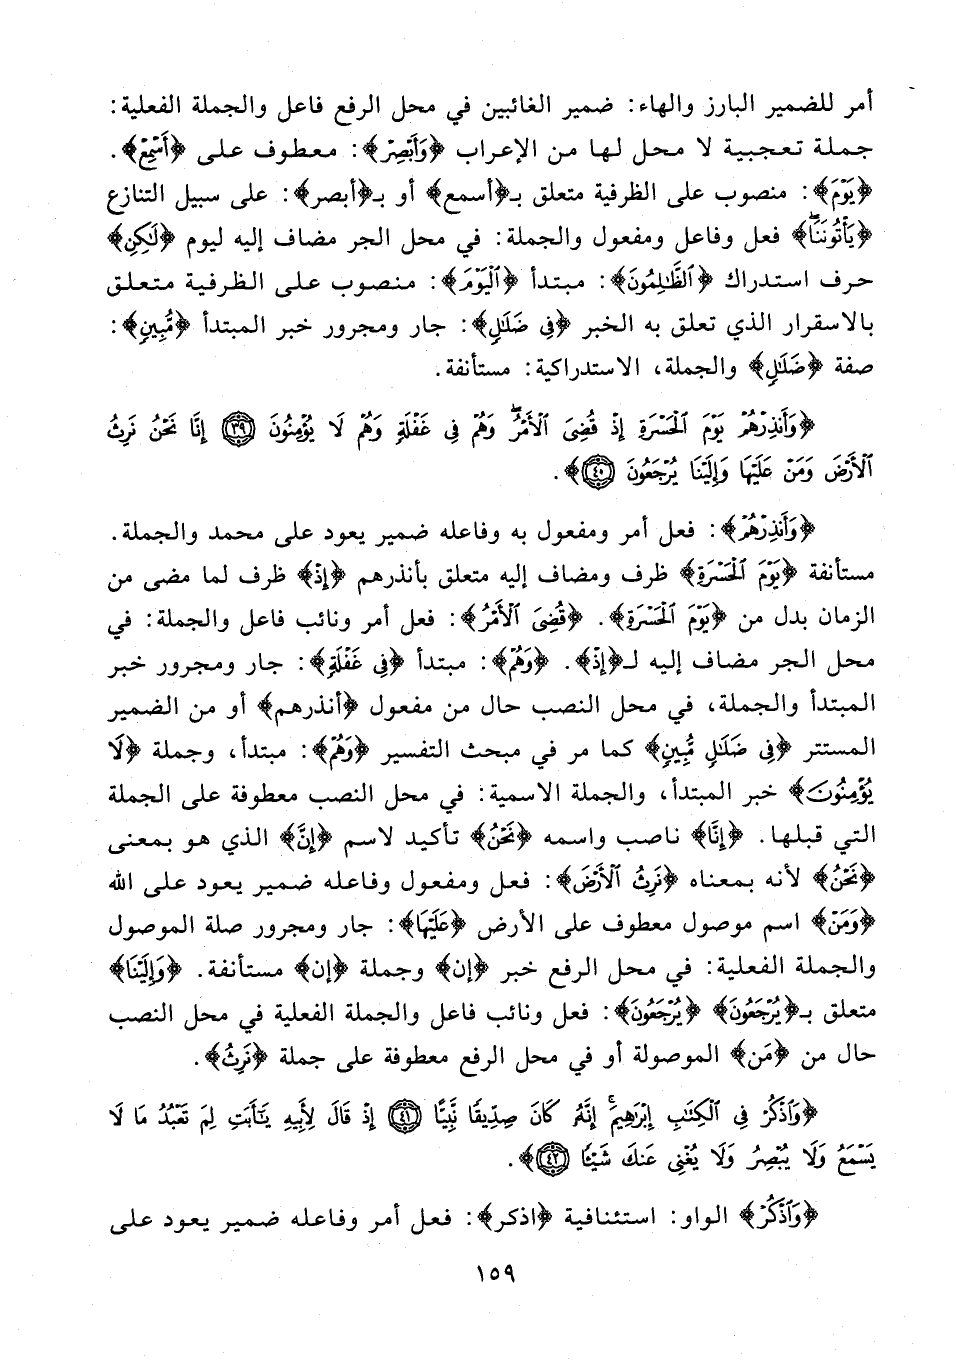 أمر للضمير البارز والهاء: ضمير الغائبين في محل الرفع فاعل والجملة الفعلية:
جملة تعجبية لا محل لها من الإعراب ﴿وَأَبْصِرْ﴾: معطوف على ﴿أَسْمِعْ﴾.
﴿يَوْمَ﴾: منصوب على الظرفية متعلق بـ﴿أسمع﴾ أو بـ﴿أبصر﴾: على سبيل التنازع
﴿يَأْتُونَنَا﴾ فعل وفاعل ومفعول والجملة: في محل الجر مضاف إليه ليوم ﴿لَٰكِنِ﴾
حرف استدراك ﴿ٱلظَّٰلِمُونَ﴾: مبتدأ ﴿ٱلْيَوْمَ﴾: منصوب على الظرفية متعلق
بالاسقرار الذي تعلق به الخبر ﴿فِى ضَلَٰلٍ﴾: جار ومجرور خبر المبتدأ ﴿مُّبِينٍ﴾:
صفة ﴿ضَلَٰلٍ﴾ والجملة، الاستدراكية: مستأنفة.
﴿وَأَنذِرْهُمْ يَوْمَ ٱلْحَسْرَةِ إِذْ قُضِىَ ٱلْأَمْرُ وَهُمْ فِى غَفْلَةٍ وَهُمْ لَا يُؤْمِنُونَ ٣٩ إِنَّا نَحْنُ نَرِثُ
ٱلْأَرْضَ وَمَنْ عَلَيْهَا وَإِلَيْنَا يُرْجَعُونَ ٤٠﴾.
﴿وَأَنذِرْهُمْ﴾: فعل أمر ومفعول به وفاعله ضمير يعود على محمد والجملة.
مستأنفة ﴿يَوْمَ ٱلْحَسْرَةِ﴾ ظرف ومضاف إليه متعلق بأنذرهم ﴿إِذْ﴾ ظرف لما مضى من
الزمان بدل من ﴿يَوْمَ ٱلْحَسْرَةِ﴾. ﴿قُضِىَ ٱلْأَمْرُ﴾: فعل أمر ونائب فاعل والجملة: في
محل الجر مضاف إليه لـ﴿إِذْ﴾. ﴿وَهُمْ﴾: مبتدأ ﴿فِى غَفْلَةٍ﴾: جار ومجرور خبر
المبتدأ والجملة، في محل النصب حال من مفعول ﴿أنذرهم﴾ أو من الضمير
المستتر ﴿فِى ضَلَٰلٍ مُّبِينٍ﴾ كما مر في مبحث التفسير ﴿وَهُمْ﴾: مبتدأ، وجملة ﴿لَا
يُؤْمِنُونَ﴾ خبر المبتدأ، والجملة الاسمية: في محل النصب معطوفة على الجملة
التي قبلها. ﴿إِنَّا﴾ ناصب واسمه ﴿نَحْنُ﴾ تأكيد لاسم ﴿إِنَّ﴾ الذي هو بمعنى
﴿نَحْنُ﴾ لأنه بمعناه ﴿نَرِثُ ٱلْأَرْضَ﴾: فعل ومفعول وفاعله ضمير يعود على الله
﴿وَمَنْ﴾ اسم موصول معطوف على الأرض ﴿عَلَيْهَا﴾: جار ومجرور صلة الموصول
والجملة الفعلية: في محل الرفع خبر ﴿إن﴾ وجملة ﴿إن﴾ مستأنفة. ﴿وَإِلَيْنَا﴾
متعلق بـ﴿يُرْجَعُونَ﴾ ﴿يُرْجَعُونَ﴾: فعل ونائب فاعل والجملة الفعلية في محل النصب
حال من ﴿مَن﴾ الموصولة أو في محل الرفع معطوفة على جملة ﴿نَرِثُ﴾.
﴿وَٱذْكُرْ فِى ٱلْكِتَٰبِ إِبْرَٰهِيمَ ۚ إِنَّهُۥ كَانَ صِدِّيقًا نَّبِيًّا ٤١ إِذْ قَالَ لِأَبِيهِ يَٰٓأَبَتِ لِمَ تَعْبُدُ مَا لَا
يَسْمَعُ وَلَا يُبْصِرُ وَلَا يُغْنِى عَنكَ شَيْـًٔا ٤٢﴾.
﴿وَٱذْكُرْ﴾ الواو: استئنافية ﴿اذكر﴾: فعل أمر وفاعله ضمير يعود على
١٥٩